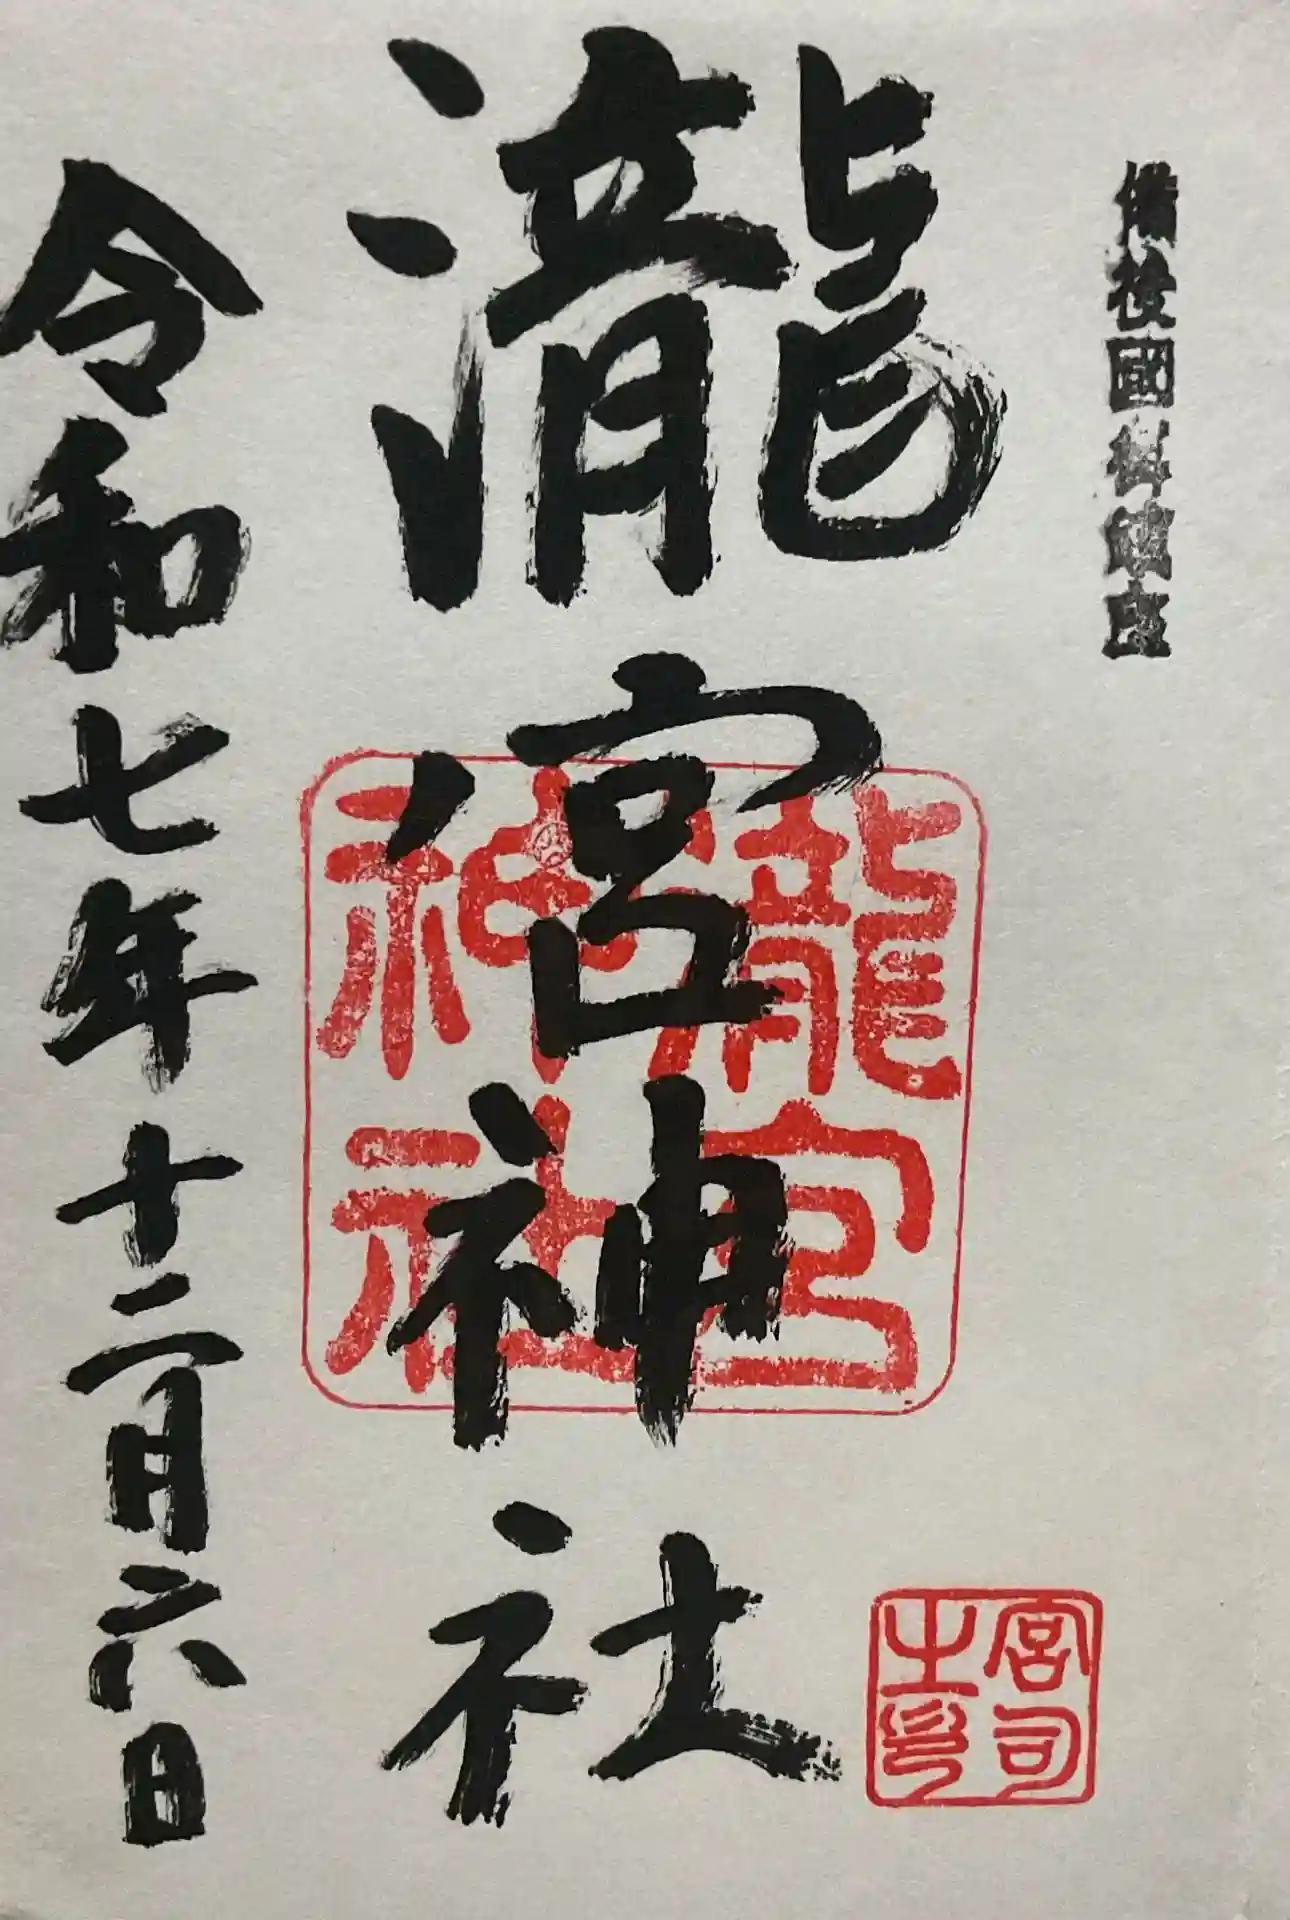 備後國鎮座
瀧宮神社
瀧宮
神社
宮司
之印
令和七年十二月六日